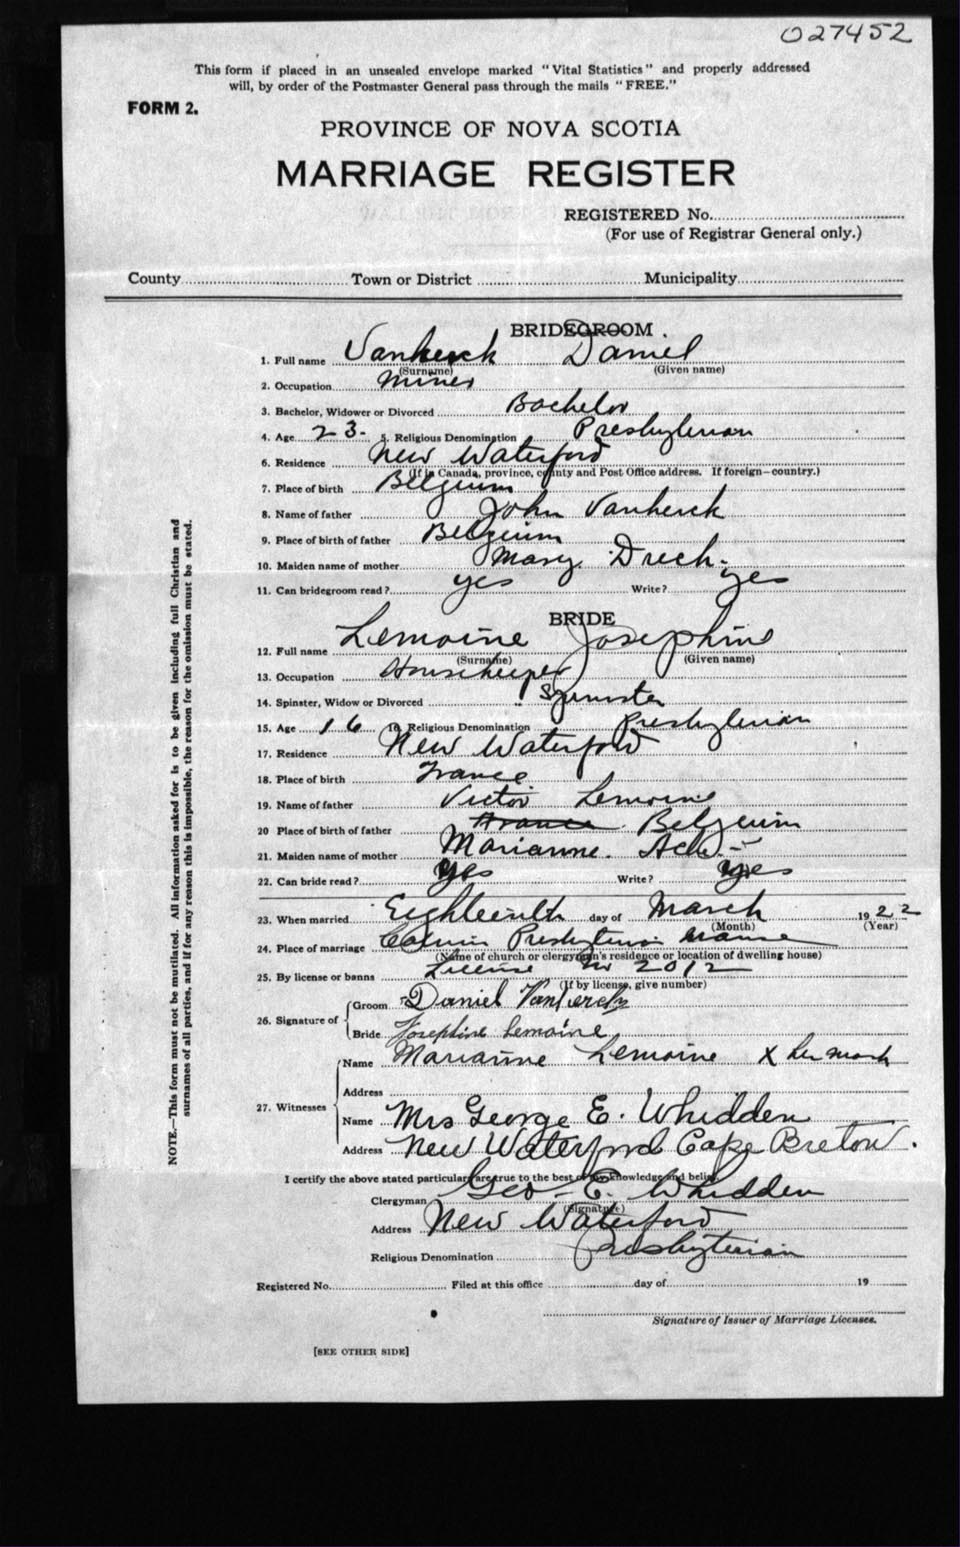 027452
This form if placed in an unsealed envelope marked "Vital Statistics" and properly addressed
will, by order of the Postmaster General pass through the mails "FREE."
FORM 2.
PROVINCE OF NOVA SCOTIA
MARRIAGE REGISTER
REGISTERED No.
(For use of Registrar General only.)
County Town or District Municipality
BRIDEGROOM.
1. Full name Vanherck Daniel
(Surname) (Given name)
2. Occupation Miner
3. Bachelor, Widower or Divorced Bachelor
4. Age 23. 5. Religious Denomination Presbyterian
6. Residence New Waterford
(If in Canada, province, county and Post Office address. If foreign—country.)
7. Place of birth Belgium
8. Name of father John Vanherck
9. Place of birth of father Belgium
10. Maiden name of mother Mary Drech.
11. Can bridegroom read? yes Write? yes
BRIDE
12. Full name Lemoine Josephine
(Surname) (Given name)
13. Occupation Housekeeper
14. Spinster, Widow or Divorced Spinster
15. Age 16 16. Religious Denomination Presbyterian
17. Residence New Waterford
18. Place of birth France
19. Name of father Victor Lemoine
20 Place of birth of father France Belgium
21. Maiden name of mother Marianne.
22. Can bride read? yes Write? yes
23. When married Eighteenth day of March 1922
(Month) (Year)
24. Place of marriage Calvin Presbyterian manse
(Name of church or clergyman's residence or location of dwelling house)
25. By license or banns License No 2012
(If by license, give number)
26. Signature of Groom Daniel Vanherck
Bride Josephine Lemoine
27. Witnesses Name Marianne Lemoine X her mark
Address
Name Mrs George E. Whidden
Address New Waterford Cape Breton.
I certify the above stated particulars are true to the best of my knowledge and belief.
Clergyman Geo E. Whidden
(Signature)
Address New Waterford
Religious Denomination Presbyterian
Registered No. Filed at this office day of 19
Signature of Issuer of Marriage Licenses.
[SEE OTHER SIDE]
NOTE.—This form must not be mutilated. All information asked for is to be given including full Christian and
surnames of all parties, and if for any reason this is impossible, the reason for the omission must be stated.